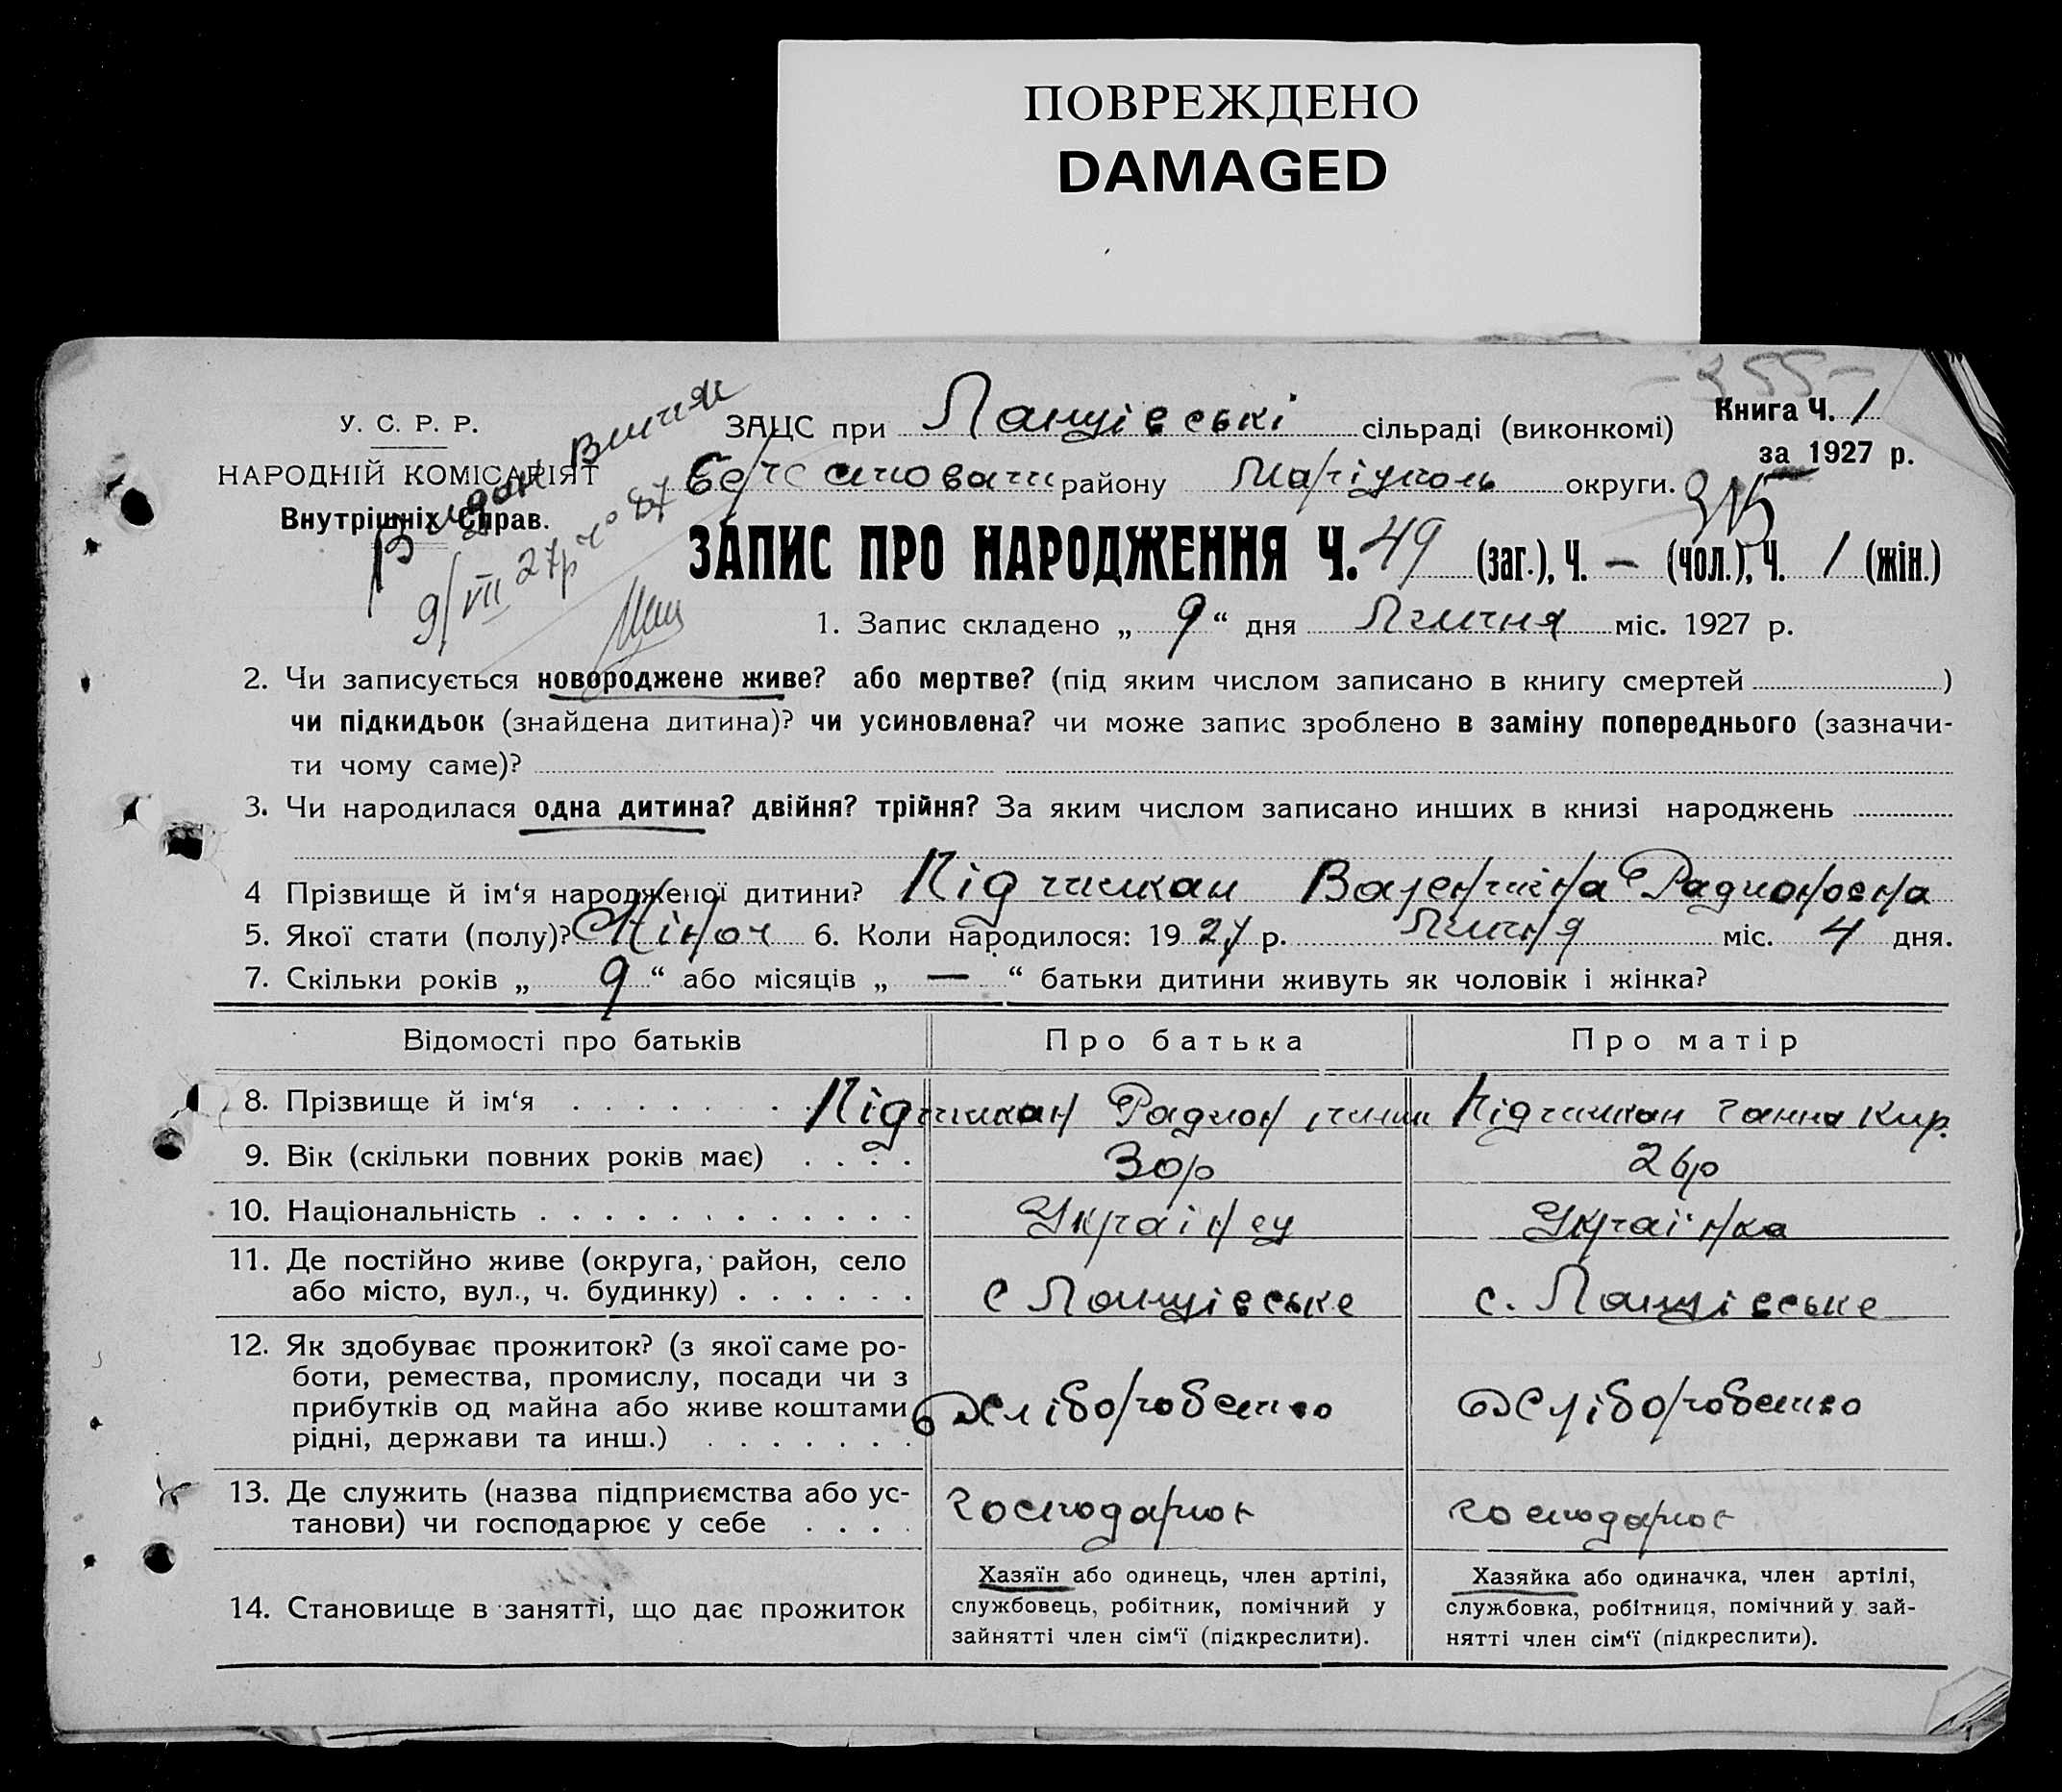 ПОВРЕЖДЕНО
DAMAGED
- 355 -
У. С. Р. Р.
НАРОДНІЙ КОМІСАРІЯТ
Внутрішніх Справ.
Видан витяг
9/VII 27р ч° 87
ЗАЦС при Ланцієвські сільраді (виконкомі)
Книга Ч. 1
за 1927 р.
району Маріуполь округи.
ЗАПИС ПРО НАРОДЖЕННЯ Ч. 49 (заг.), Ч. — (чол.), Ч. 1 (жін.)
1. Запис складено „ 9 “ дня Липня міс. 1927 р.
2. Чи записується новороджене живе? або мертве? (під яким числом записано в книгу смертей )
чи підкидьок (знайдена дитина)? чи усиновлена? чи може запис зроблено в заміну попереднього (зазначи-
ти чому саме)?
3. Чи народилася одна дитина? двійня? трійня? За яким числом записано инших в книзі народжень
4 Прізвище й ім‘я народженої дитини? Підчишан Валентина Радионовна
5. Якої стати (полу)? Жіноч 6. Коли народилося: 1927 р. Липня міс. 4 дня.
7. Скільки років „ 9 “ або місяців „ — “ батьки дитини живуть як чоловік і жінка?
Відомості про батьків Про батька Про матір
8. Прізвище й ім‘я . . . . . . . Підчишан Радион Підчишан Ганна Кир.
9. Вік (скільки повних років має) . . . . 30р 26р
10. Національність . . . . . . . . . . . . Українец Українка
11. Де постійно живе (округа, район, село
або місто, вул., ч. будинку) . . . . . . с Ланцієвське с. Ланцієвське
12. Як здобуває прожиток? (з якої саме ро-
боти, ремества, промислу, посади чи з
прибутків од майна або живе коштами
рідні, держави та инш.) . . . . . . . Хліборобство Хліборобство
13. Де служить (назва підприємства або ус-
танови) чи господарює у себе . . . . господарює господарює
14. Становище в занятті, що дає прожиток
Хазяїн або одинець, член артілі,
службовець, робітник, помічний у
зайнятті член сім‘ї (підкреслити).
Хазяйка або одиначка, член артілі,
службовка, робітниця, помічний у зай-
нятті член сім‘ї (підкреслити).